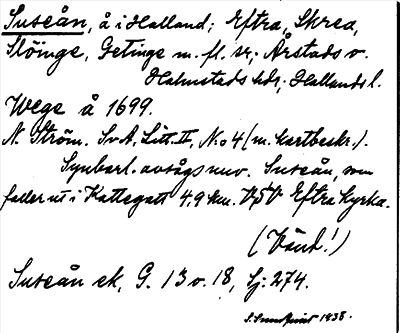 Suseån, å i Halland; Eftra, Skrea,
Slöinge, Getinge m. fl. sr; Årstads o.
Halmstads hdr; Hallands l.
Wege å 1699.
N. Ström. SvA, Litt. II, No 4 (m. kartbeskr.).
Synbarl. avsågs nuv. Suseån, som
faller ut i Kattegatt 4,9 km. VSV Eftra kyrka.
(Vänd!)
Suseån ek, G. 13 o. 18, Sj: 274.
1938.